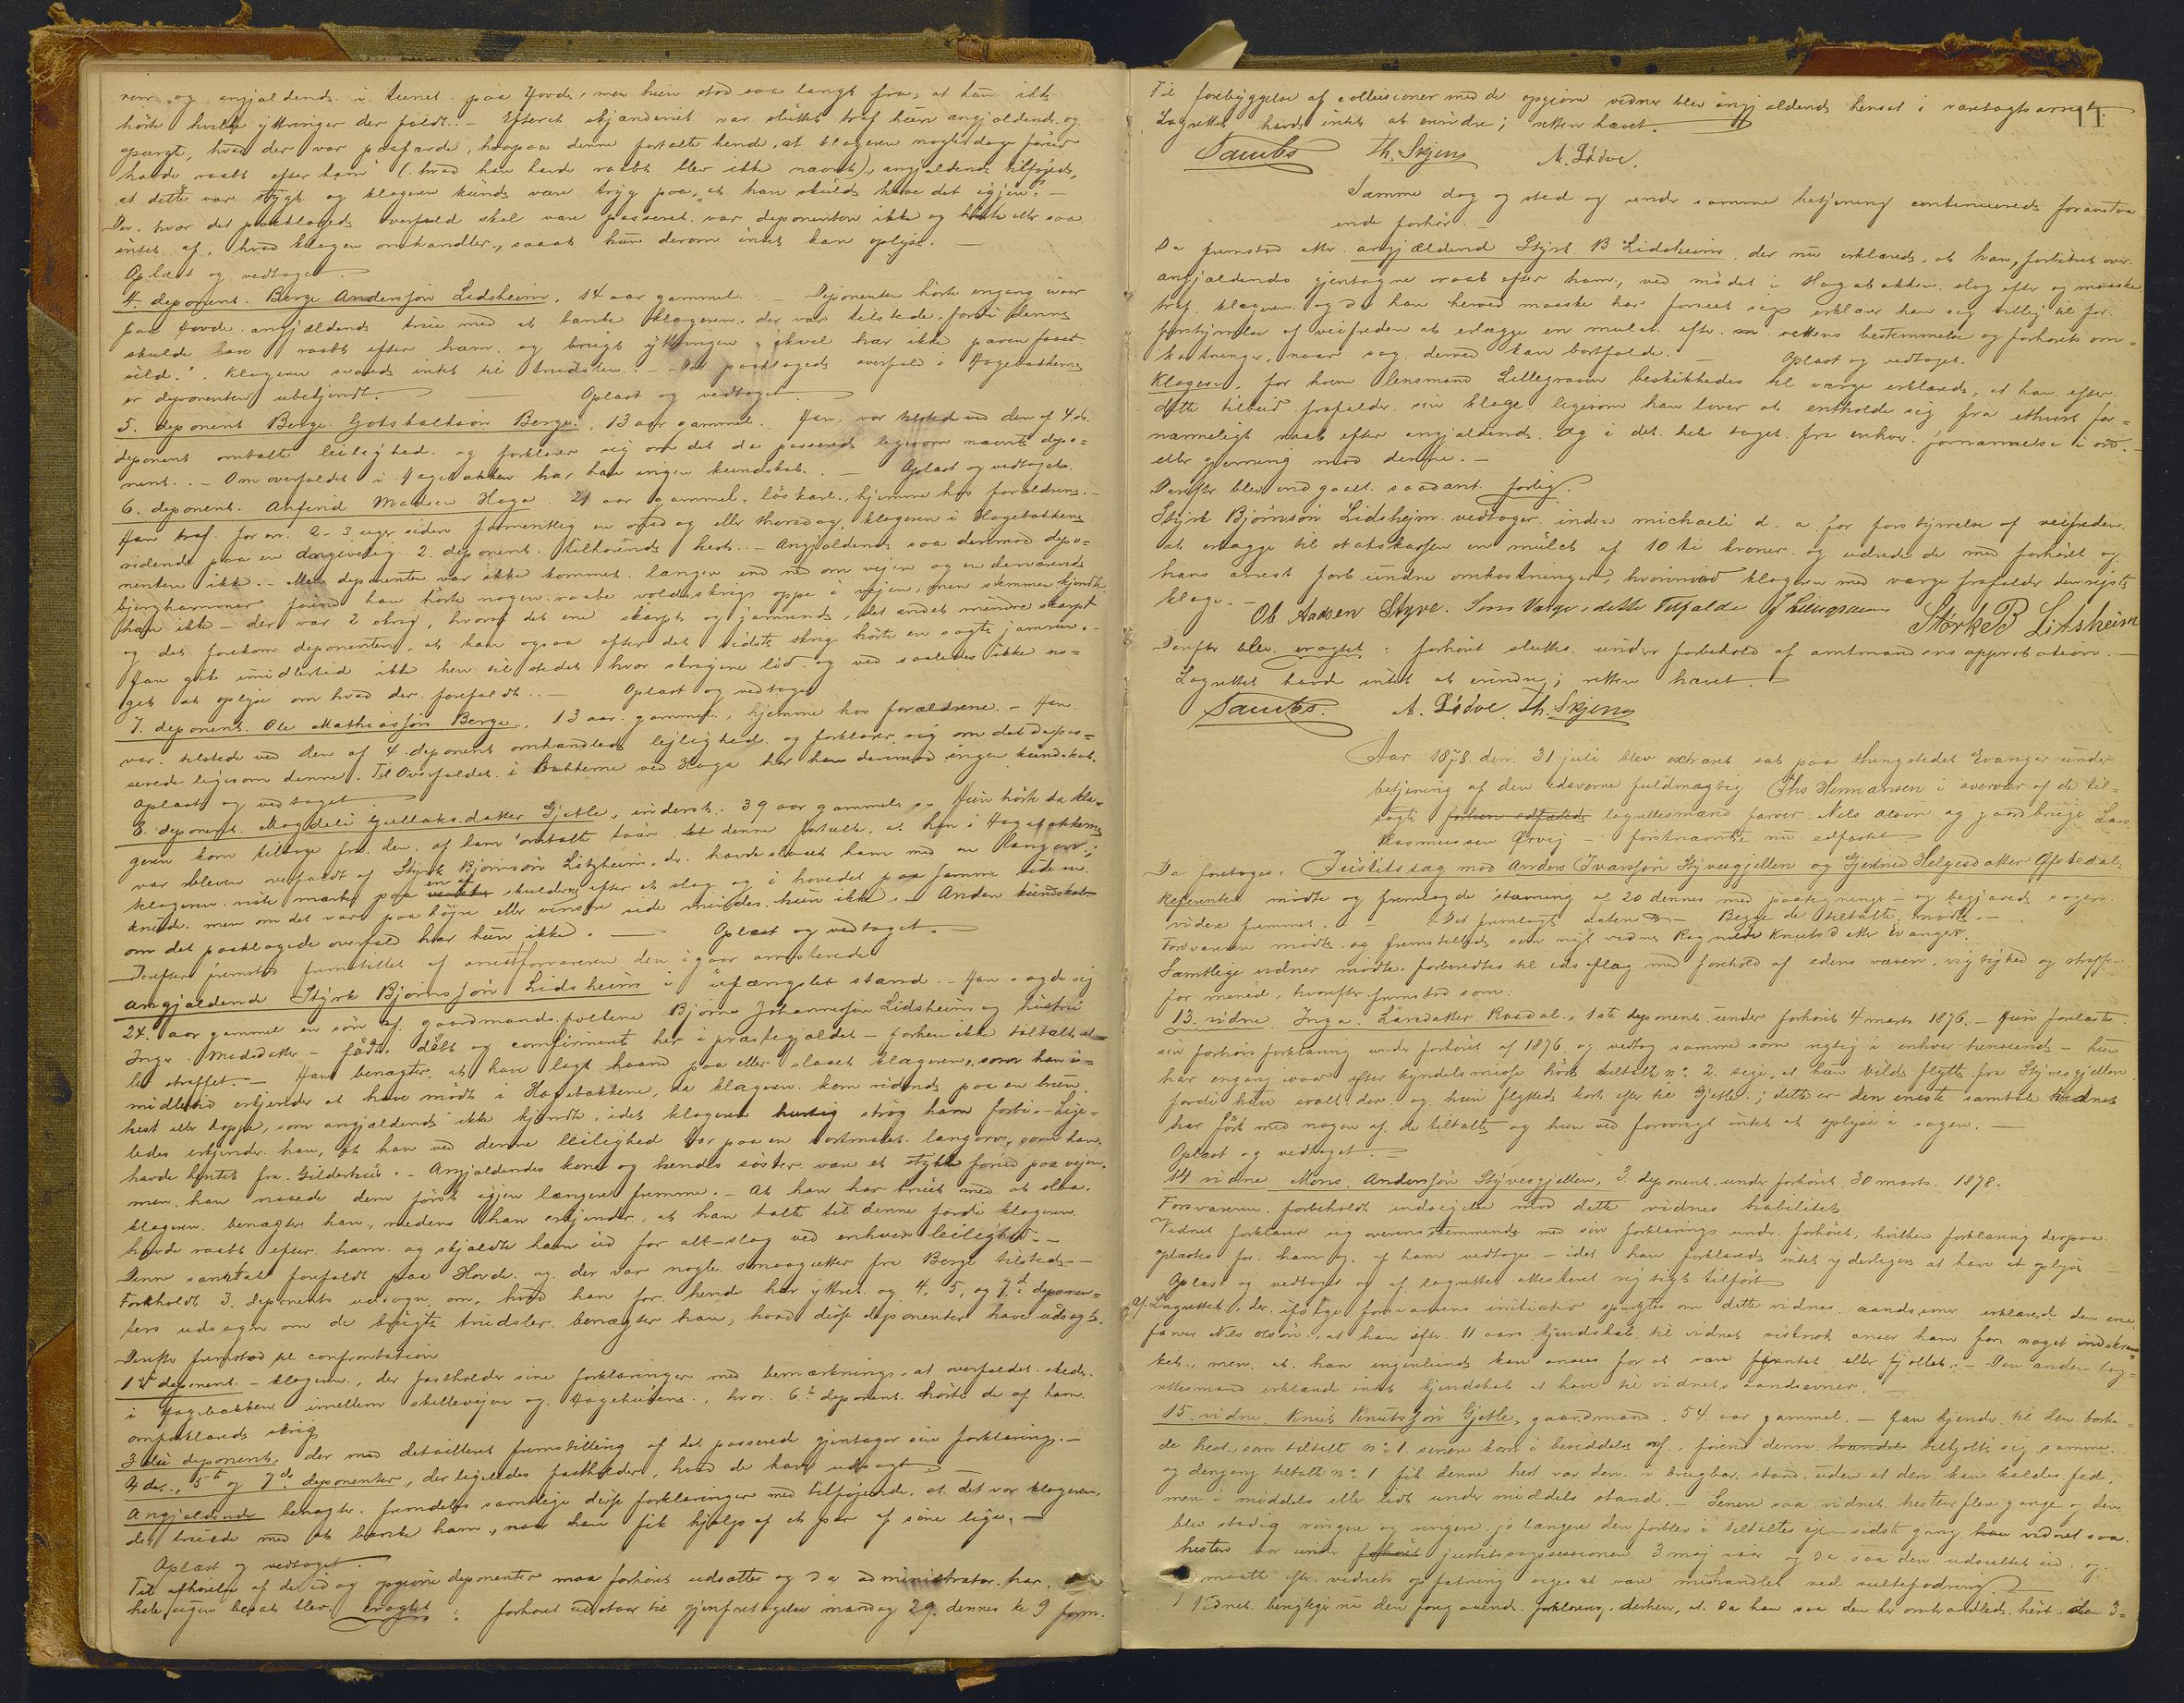 ren og angjældende i tunet paa Hovde, men hun stod saa langt fra, at hun ikke
hörte hvilke yttringer der faldt. – Efterat skjænderiet var sluttet traf hun angjældende og
spurgte, hvad der var paafærde, hvorpaa denne fortalte hende, at klageren nogle dage forud
havde raabt efter ham (hvad han havde raabt blev ikke nævnt), angjældende tilföjede,
at dette var stygt og klageren kunde være tryg paa, at han skulde have det igjen. –
Der hvor det paaklagede overfald skal være passeret var deponenten ikke og hörte eller saa
intet af, hvad klagen omhandler, saaat hun derom intet kan oplyse. –
Oplæst og vedtaget.
4. deponent. Berge Andersjön Lidsheim, 14 aar gammel. – Deponenten hörte engang ivaar
paa Hovde angjældende true med at banke klageren, der var tilstede, fordi denne
skulde have raabt efter ham og brugt yttringen "skvel har ikke paven faaet
sild." Klageren svarede intet til truslen. – Det paaklagede overfald i Hagebakkerne
er deponenten ubekjendt. – Oplæst og vedtaget.
5. deponent Berge Gotskalksön Berge, 13 aar gammel. Han var tilstede ved den af 4de
deponent omtalte leilighed og forklarer sig om det da passerede ligesom nævnte depo=
nent. – Om overfaldet i Hagebakken har han ingen kundskab. – Oplæst og vedtaget.
6. deponent. Anfind Madsen Haga 21 aar gammel, löskarl, hjemme hos forældrene. –
Han traf for ca. 2-3 uger siden formentlig en onsdag eller thorsdag, klageren i Hagebakkerne
ridende paa en 2. deponent tilhörende hest. – Angjældende saa derimod depo=
nenten ikke. – Men deponenten var ikke kommet længer end ned om vejen og en derværende
bjerghammer förend han hörte nogen raabe voldsskrig oppe i vejen, men stemmen kjendte
han ikke – der var 2 skrig, hvoraf det ene skarpt og jamrende, det andet mindre skarpt
og det forekom deponenten, at han ogsaa efter det sidste skrig hörte en sagte jamren. –
Han gik imidlertid ikke hen til stedet hvor skrigene löd og ved saaledes ikke no=
get at oplyse om hvad der forefaldt. – Oplæst og vedtaget
7. deponent. Ole Mathiasjön Berge, 13 aar gammel, hjemme hos forældrene. – Han
var tilstede ved den af 4. deponent omhandlede lejlighed og forklarer sig om det da pas=
serede ligesom denne. Til Overfaldet i Bakkerne ved Haga har han derimod ingen kundskab.
Oplæst og vedtaget.
8. deponent. Magdeli datter Gjetle, inderst, 39 aar gammel. – Hun hörte da kla=
geren kom tilbage fra den af ham omtalte tour denne fortælle, at han i Hagebakkerne
var bleven overfaldt af Styrk Björnsön Lidsheim, der havde slaaet ham med en Langorv;
klageren viste mærke paa en af skuldrene efter et slag og i hovedet paa samme side en
knude, men om det var paa höjre eller venstre side mindes hun ikke. – Anden kundskab
om det paaklagede overfald har hun ikke. – Oplæst og vedtaget. –
Derefter fremstod fremstillet af arrestforvareren den igaar arresterede
angjældende Styrk Björnsjön Lidsheim i ufængslet stand. – Han sagde sig
24 aar gammel en sön af gaardmandsfolkene Björne Johannesjön Lidsheim og hustru
Inger Madsdatter – födt, döbt og confirmeret her i præstegjældet – forhen ikke tiltalt el=
ler straffet. – Han benægter, at have lagt haand paa eller slaaet klageren, som han i=
midlertid erkjender at have mödt i Hagebakkerne, da klageren kom ridende paa en brun
hest eller hoppe, som angjældende ikke kjendte, idet klageren hurtig strög ham forbi. – Lige=
ledes erkjender han, at han ved denne leilighed bar paa en langorv, som han
havde hentet fra Gilderhus. – Angjældendes kone og hendes söster vare et stykke forud paa vejen,
men han naaede dem först igjen længere fremme. – At han har truet med at slaa
klageren benægter han, medens han erkjender, at han talte til denne fordi klageren
havde raabt efter ham og skjældte ham ud for alt-slag ved enhver leilighed. –
Denne samtale forefaldt paa Hovde og der var nogle smaagutter fra Berge tilstede. –
Foreholdt 3. deponents udsagn om, hvad han for hende har yttret og 4, 5, og 7de deponen=
ters udsagn om de brugte trudsler benægter han, hvad disse deponenter have udsagt.
Derefter fremstod til confrontation
1ste deponent – klageren, der fastholder sine forklaringer med bemærkning, at overfaldet skede
i Hagebakken imellem skillevejen og Hagehusene, hvor 6te deponent hörte de af ham
omforklarede skrig
3die deponent, der med detailleret fremstilling af det passerede gjentager sin forklaring. –
4de, 5te og 7de deponenter, der ligeledes fastholder, hvad de have udsagt.
Angjældende benægter fremdeles samtlige disse forklaringer med tilföjende, at det var klageren,
der truede med at banke ham, naar han fik hjælp af et par af sine lige. –
Oplæst og vedtaget.
Til afhörelse af de idag opgivne deponenter maa forhöret udsættes og da administrator har
hele ugen besat blev eragtet: forhöret udstaar til gjenforetagelse mandag 29. dennes kl 9 form.
11.
Til forebyggelse af collusioner med de opgivne vidner blev angjældende henset i varetægtsarrest.
Lagrettet havde intet at erindre; retten hævet.
Sambs Th. Skjens A. Lödve.
Samme dag og sted og under samme betjening continueredes foranstaa=
ende forhör. –
Da fremstod atter angjældende Styrk B Lidsheim, der nu erklærede, at han, forbitret over
angjældendes gjentagne raab efter ham, ved mödet i Hagabakken slog efter og maaske
traf klageren og da han herved maaske har forseet sig erklærer han sig villig til for
forstyrrelse af veifreden at erlægge en mulct efter rettens bestemmelse og forhörets om=
kostninger, naar sag derved kan bortfalde. – Oplæst og vedtaget.
Klageren, for hvem lensmand Lillegraven beskikkedes til værge erklærede, at han efter
dette tilbud frafalder sin klage ligesom han lover at entholde sig fra ethvert for=
nærmeligt raab efter angjældende og i det hele taget fra enhver fornærmelse i ord
eller gjerning mod denne. –
Derefter blev indgaaet saadant forlig:
Styrk Björnsön Lidsheim vedtager inden michaeli d. a. for forstyrrelse af veifreden
at erlægge til statskassen en mulct af 10 ti kroner og udrede de med forhöret og
hans arrest forbundne omkostninger, hvorimod klageren med værge frafalder den rejste
klage. –
Ole Aadsen Styve. Som Værge i dette Tilfælde J Lillegraven Störke B Litsheim
Derefter blev eragtet: forhöret sluttes under forbehold af amtmandens approbation. –
Lagrettet havde intet at erindre; retten hævet.
Sambs. A. Lödve. Th. Skjens
Aar 1878 den 31 juli blev extraret sat paa thingstedet Evanger under
betjening af den edsvorne fuldmægtig Chs Hermansen i overvær af de til=
sagte forhen edfæstede lagrettesmænd farver Nils Olsön og gaardbruger Lars
Rasmussen Örvig – förstnævnte nu edfæstet
Da foretages: Justitssag mod Anders Ivarsjön Styvesgjellen og Gjertrud Helgesdatter
Referenten mödte og fremlagde stævning af 20 dennes med paategninger – og begjærede sagen
videre fremmet. – Det fremlagte – Begge de tiltalte mödte. –
Forsvareren mödte og fremstillede som nyt vidne Ragnilda Knutsdatter Evanger.
Samtlige vidner mödte, forberedtes til edsaflæg med forehold af edens væsen, vigtighed og straffen
for mened, hvorefter fremstod som:
13. vidne Inga Larsdatter Rasdal, 1ste deponent under forhöret 4 marts 1876. – Hun forelæstes
sin forhörsforklaring under forhöret af 1876 og vedtog samme som rigtig i enhver henseende – hun
har engang ivaar efter Kyndelsmisse hört tiltalte no 2 sige, at hun vilde flytte fra Styvesgjellen
fordi hun svalt der og hun flyttede kort efter til Gjetle; dette er den eneste samtale vidnet
har fört med nogen af de tiltalte og hun ved forövrigt intet at oplyse i sagen. –
Oplæst og vedtaget. –
14 vidne Mons Andersjön Styvesgjellen, 3. deponent under forhöret 30 marts 1878.
Forsvareren forbeholdt indsigelse mod dette vidnes habilitet
Vidnet forklarer sig overensstemmende med sin forklaring under forhöret, hvilken forklaring derpaa
oplæstes for ham og af ham vedtoges – idet han forklarede intet yderligere at have at oplyse
Oplæst og vedtaget og af lagrettet attesteret rigtigt tilfört
Af Lagrettet, der ifölge forsvarerens initiativ spurgtes om dette vidnes aandsevner erklærede den ene
farver Nils Olsön, at han efter 11 aars kjendskab til vidnet vistnok anser ham for noget indskræn=
ket, men at han ingenlunde kan ansees for at være forantet eller fjollet. – Den anden lag=
rettesmand erklærede intet kjendskab at have til vidnets aandsevner.
15. vidne Knut Knutsjön Gjetle, gaardmand 54 aar gammel. – Han kjender til den borke=
de hest, som tiltalte no 1 senere kom i besiddelse af, förend denne tilbyttede sig samme
og dengang tiltalte no 1 fik denne hest var den i brugbar stand uden at den kan kaldes fed,
men i middels eller lidt under middels stand. – Senere saa vidnet hesten flere gange og den
blev stadig ringere og ringere jo længere den forblev i tiltaltes eje – sidste gang vidnet saa
hesten var under justitssagssessionen 3 maj ivaar og da saa den udsultet ud og
maatte efter vidnets opfatning siges at være mishandlet ved sultefodring.
Vidnet berigtiger nu den foregaaende forklaring derhen, at da han saa den her omhandlede hest den 3=